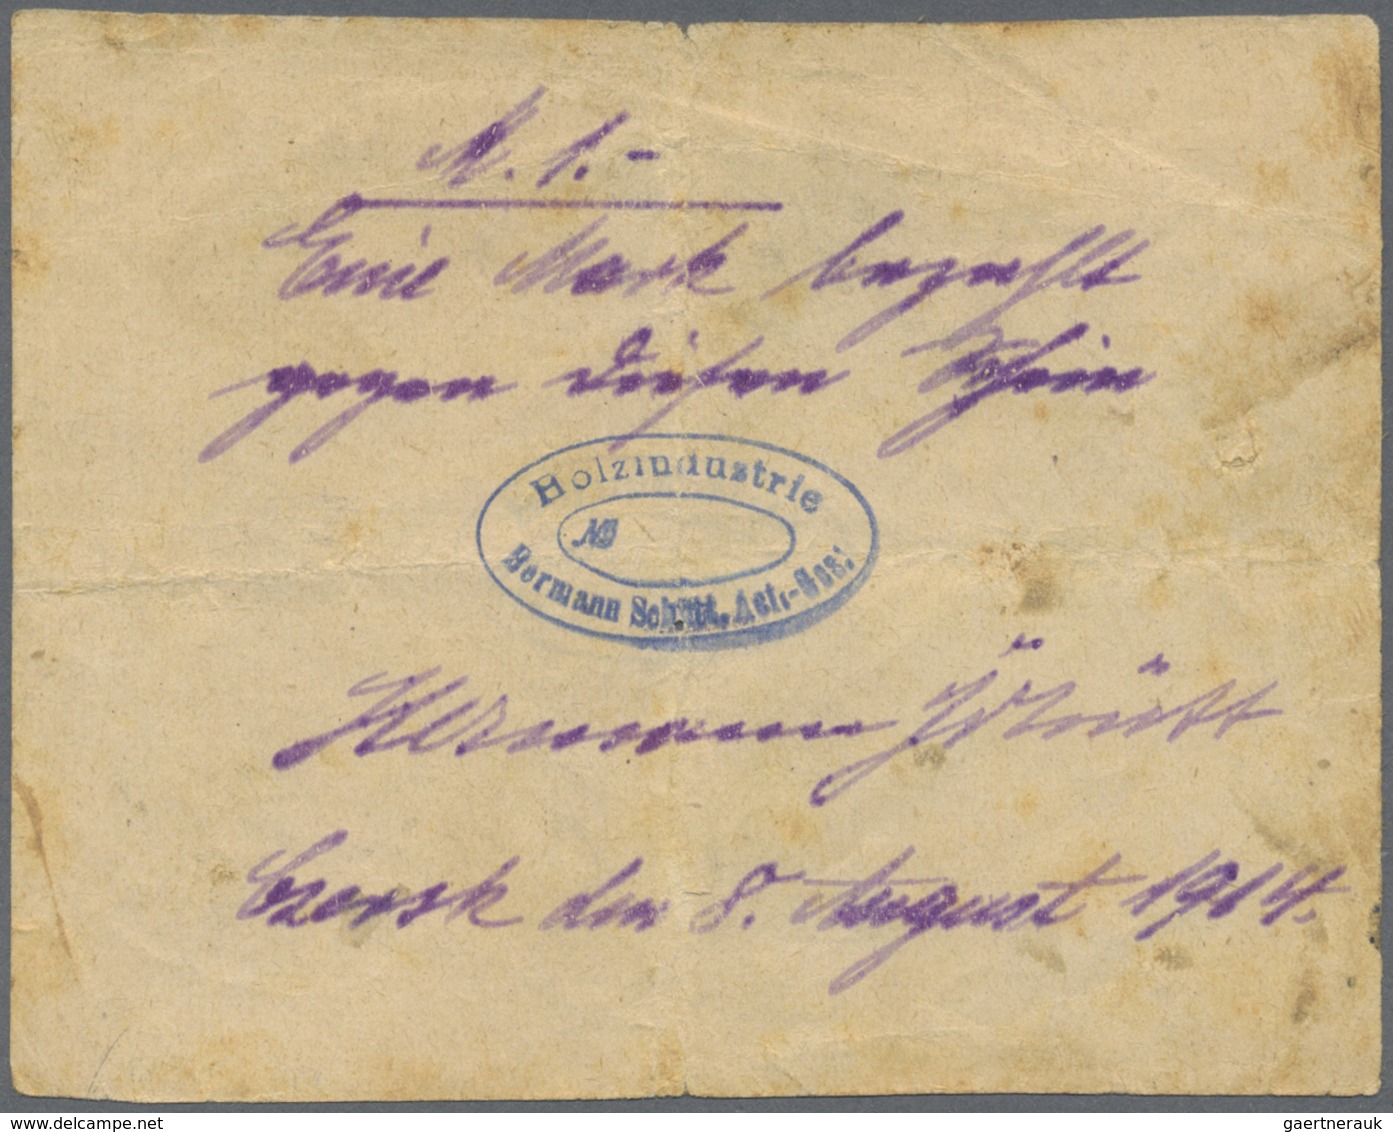 M. 1.-
Eine Mark bezahlt
gegen diesen Schein
Holzindustrie
No
Hermann Schütt, Act.-Ges:
Hermann Schütt
Czersk den 8. August 1914.
gaertnerauk